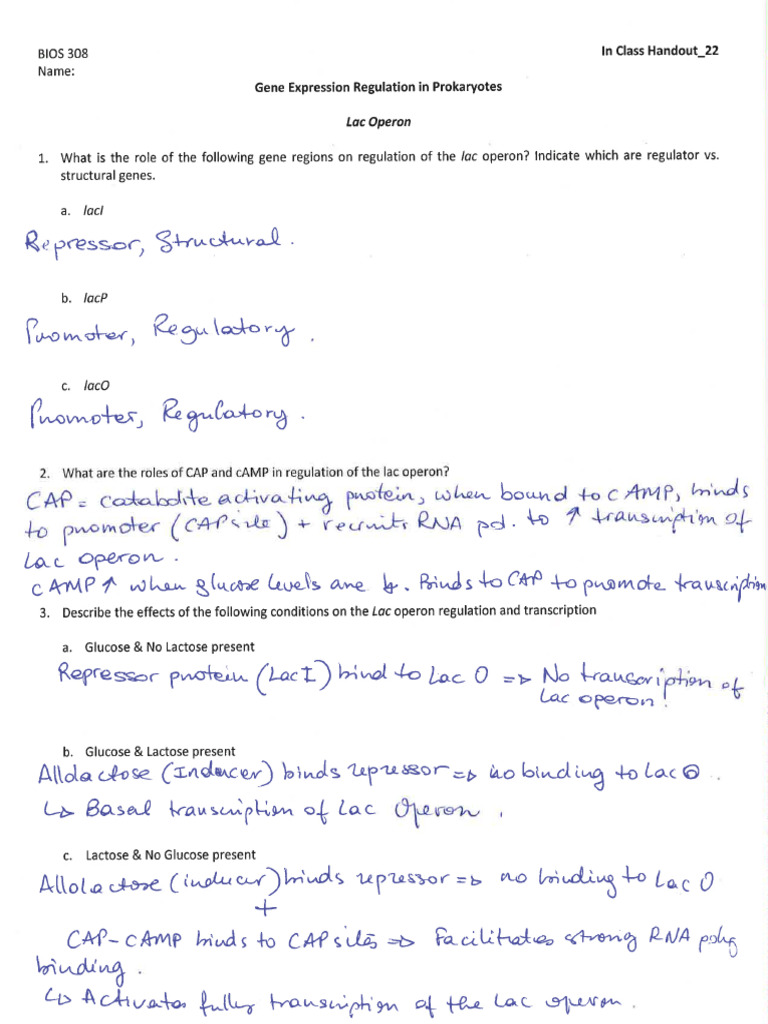 BIOS 308
In Class Handout_22
Name:
Gene Expression Regulation in Prokaryotes
Lac Operon
1. What is the role of the following gene regions on regulation of the lac operon? Indicate which are regulator vs.
structural genes.
a. lacI
Repressor, Structural.
b. lacP
Promoter, Regulatory.
c. lacO
Promoter, Regulatory.
2. What are the roles of CAP and cAMP in regulation of the lac operon?
CAP = catabolite activating protein, when bound to cAMP, binds
to promoter (CAP site) + recruits RNA pol. to ↑ transcription of
Lac operon.
cAMP ↑ when glucose levels are ↓. Binds to CAP to promote transcription
3. Describe the effects of the following conditions on the Lac operon regulation and transcription
a. Glucose & No Lactose present
Repressor protein (LacI) bind to Lac O => No transcription of
Lac operon!
b. Glucose & Lactose present
Allolactose (Inducer) binds repressor => no binding to Lac O.
↳ Basal transcription of Lac Operon.
c. Lactose & No Glucose present
Allolactose (inducer) binds repressor => no binding to Lac O
+
CAP-cAMP binds to CAP sites => Facilitates strong RNA poly
binding.
↳ Activates fully transcription of the Lac operon.